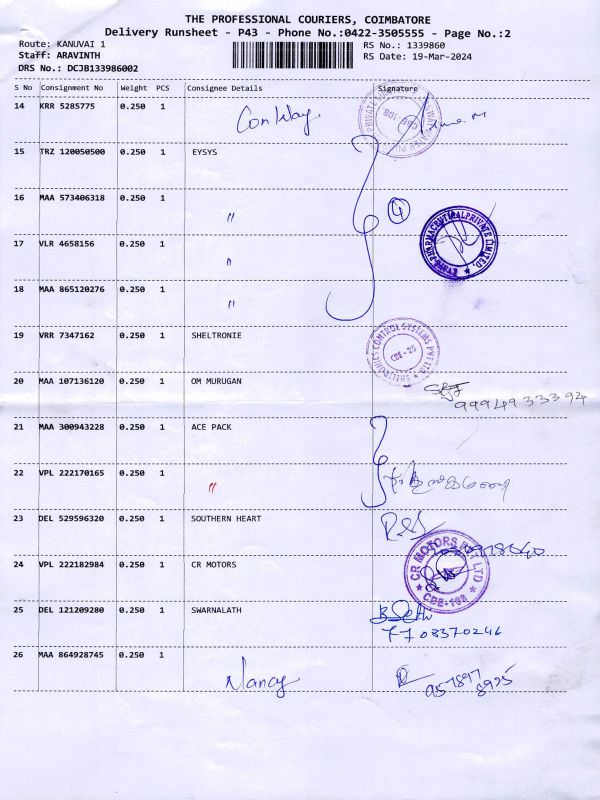 THE PROFESSIONAL COURIERS, COIMBATORE
Delivery Runsheet - P43 - Phone No.:0422-3505555 - Page No.:2
Route: KANUVAI 1
RS No.: 1339860
Staff: ARAVINTH
RS Date: 19-Mar-2024
DRS No.: DCJB133986002
S No Consignment No Weight PCS Consignee Details Signature
14 KRR 5285775 0.250 1 Conway
15 TRZ 120050500 0.250 1 EYSYS
16 MAA 573406318 0.250 1 "
4
17 VLR 4658156 0.250 1 "
EYSYS PHARMACEUTICAL PRIVATE LIMITED
18 MAA 865120276 0.250 1 "
19 VRR 7347162 0.250 1 SHELTRONIE
CONTROL SYSTEMS PVT LTD
CBE-25
20 MAA 107136120 0.250 1 OM MURUGAN
9994933394
21 MAA 300943228 0.250 1 ACE PACK
22 VPL 222170165 0.250 1 "
23 DEL 529596320 0.250 1 SOUTHERN HEART
24 VPL 222182984 0.250 1 CR MOTORS
CR MOTORS PVT LTD
CBE-108
25 DEL 121209280 0.250 1 SWARNALATH
7708370246
26 MAA 864928745 0.250 1 Nancy